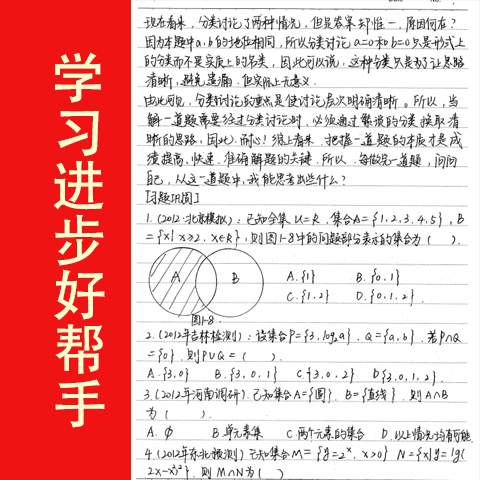 学习进步好帮手
现在看来,分类讨论了两种情况,但是答案却惟一,原因何在?
因为本题中a.b的地位相同,所以分类讨论a=0和b=0只是形式上
的分类而不是实质上的分类,因此可以说:这种分类只是为了让思路
清晰,避免遗漏.但实际上无意义.
由此可见,分类讨论的重点是使讨论层次明确清晰。所以,当
解一道题需要经过分类讨论时,必须通过繁琐的分类探取清
晰的思路,因此.耐心!综上看来.把握一道题的本质才是成
绩提高.快速.准确解题的关键.所以.每做完一道题,问问
自己,从这一道题中,我能思考出些什么?
[习题巩固]
1.(2012.北京模拟):已知全集U=R.集合A={1,2,3,4,5},B
={x|x≥2.x∈R},则图1-8中的阴影部分表示的集合为( ).
A B A.{1} B.{0,1}
C.{1,2} D.{0,1,2}.
图1-8.
2.(2012年吉林检测):设集合P={3,log₂a}.Q={a,b}.若P∩Q
={0}.则P∪Q=( ).
A.{3,0} B.{3,0,1} C.{3,0,2} D{3,0,1,2}.
3.(2012年河南调研).已知集合A={圆}.B={直线}.则A∩B
为( ).
A.∅ B.单元素集 C.两个元素的集合 D.以上情况均有可能.
4.(2012年东北预测)已知集合M={y=2ˣ,x>0} N={x|y=lg(
2x-x²)}.则M∩N为( )